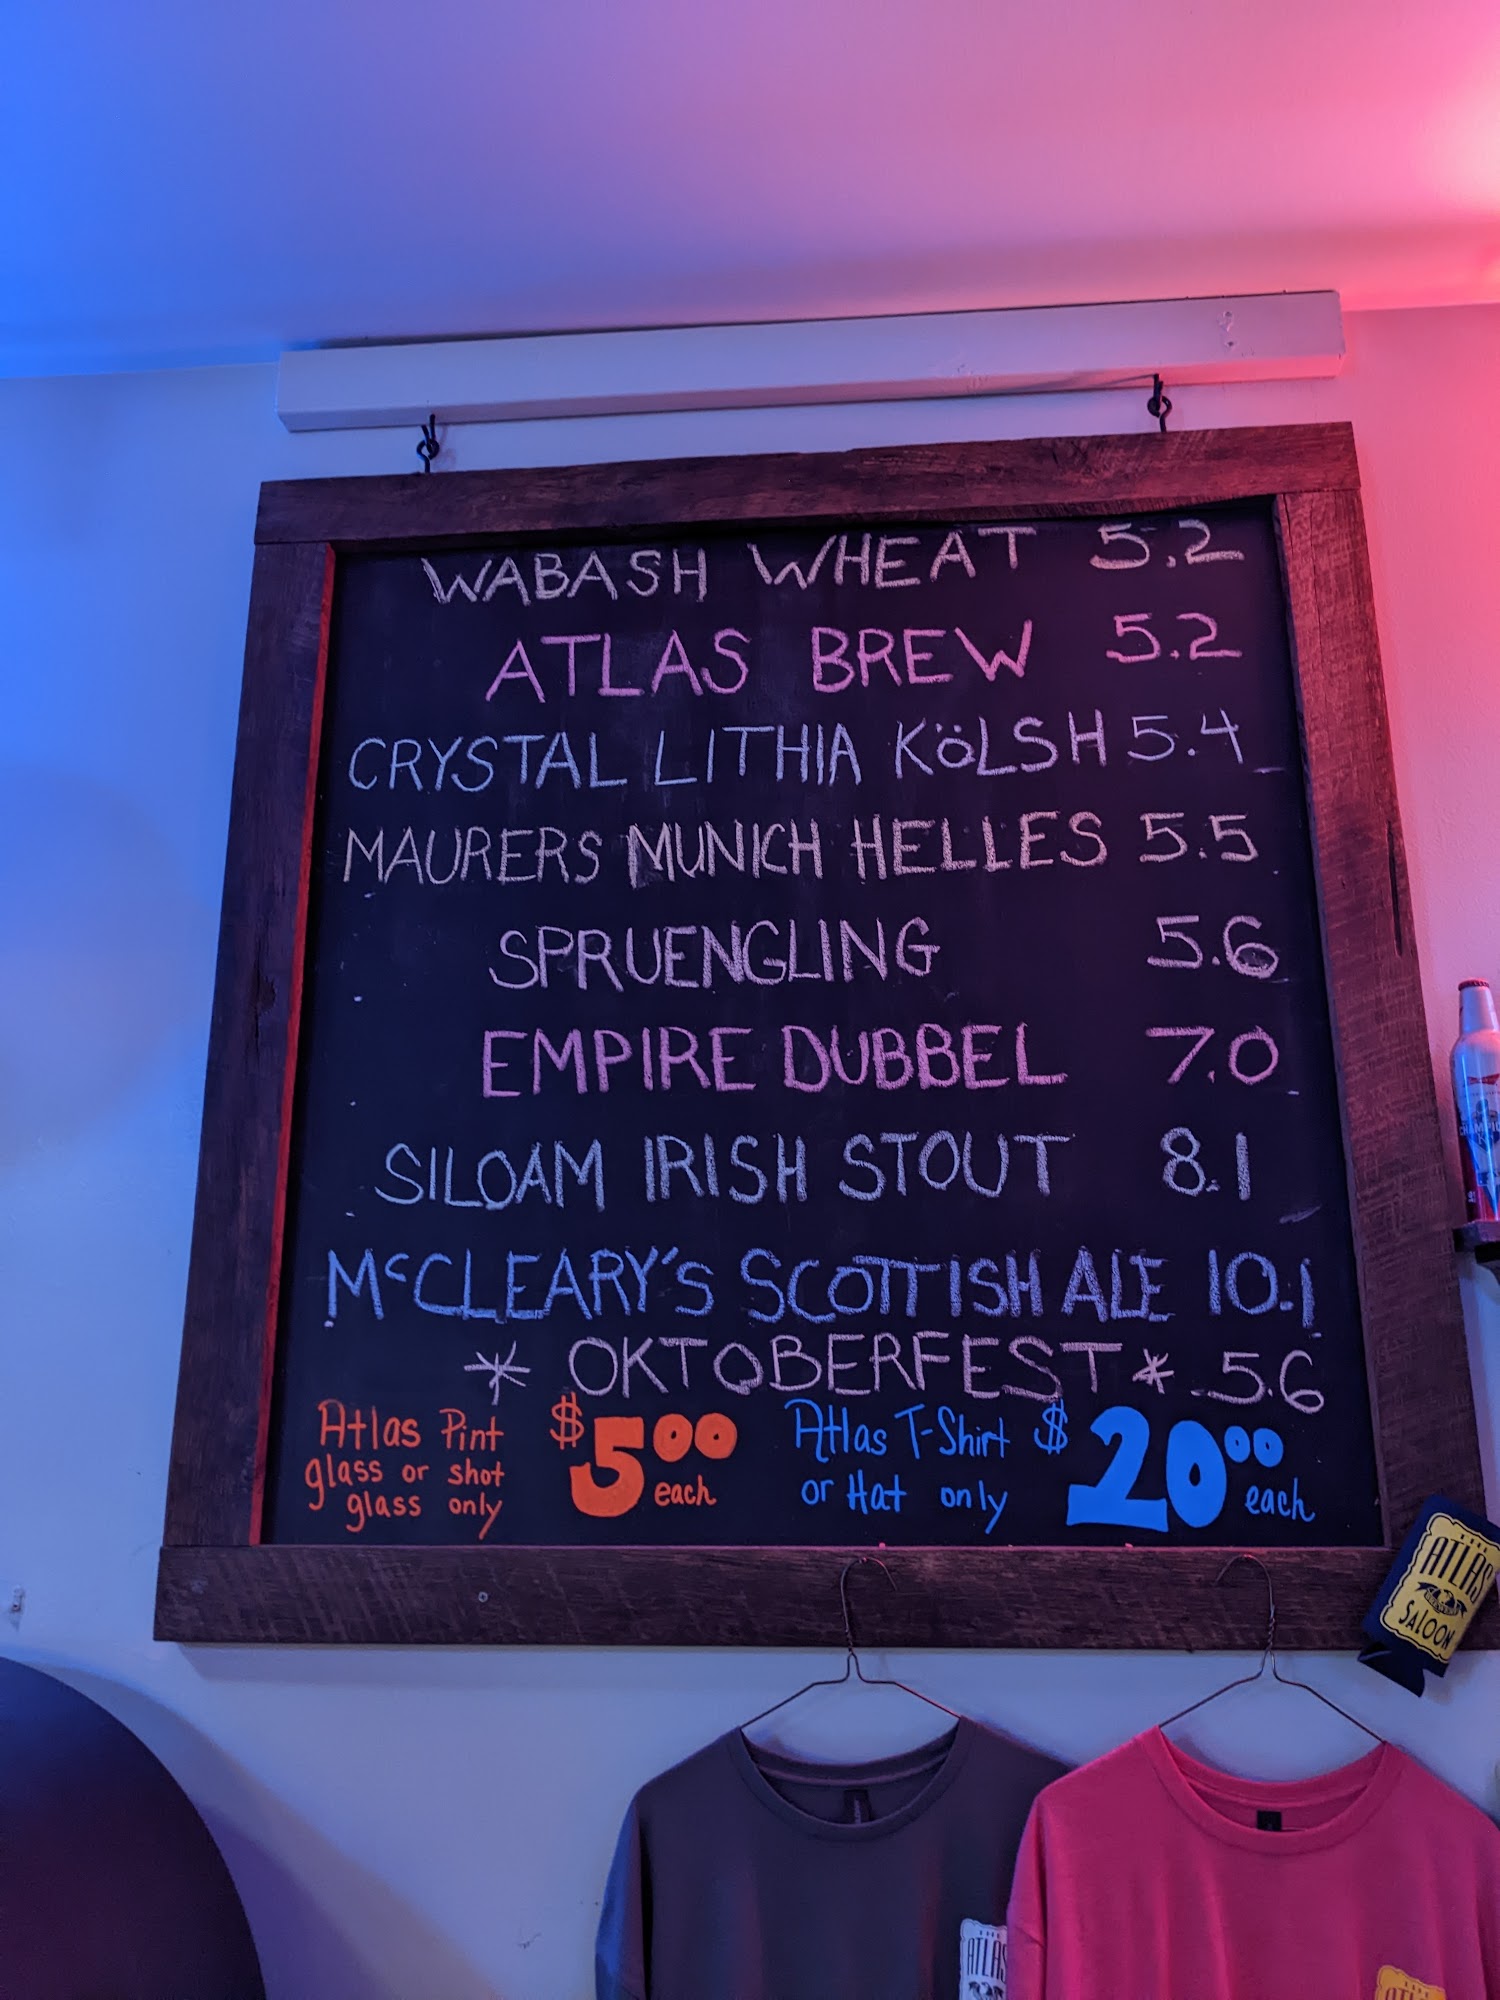 WABASH WHEAT 5.2
ATLAS BREW 5.2
CRYSTAL LITHIA KöLSH 5.4
MAURERS MUNICH HELLES 5.5
SPRUENGLING 5.6
EMPIRE DUBBEL 7.0
SILOAM IRISH STOUT 8.1
McCLEARY'S SCOTTISH ALE 10.1
* OKTOBERFEST * 5.6
Atlas Pint
glass or shot
glass only
$5.00
each
Atlas T-Shirt
or Hat only
$20.00
each
ATLAS
SALOON
ATLAS